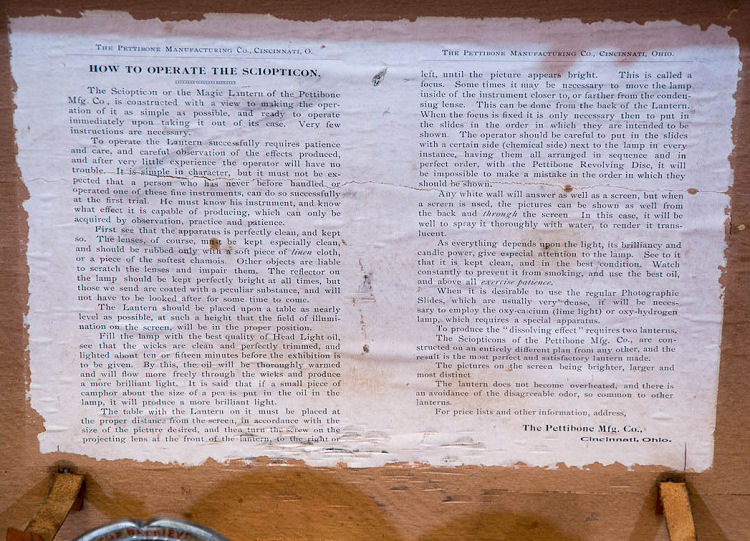 THE PETTIBONE MANUFACTURING CO., CINCINNATI, O.
HOW TO OPERATE THE SCIOPTICON.
The Sciopticon or the Magic Lantern of the Pettibone
Mfg. Co., is constructed with a view to making the oper-
ation of it as simple as possible, and ready to operate
immediately upon taking it out of its case. Very few
instructions are necessary.
To operate the Lantern successfully requires patience
and care, and careful observation of the effects produced,
and after very little experience the operator will have no
trouble. It is simple in character, but it must not be ex-
pected that a person who has never before handled or
operated one of these fine instruments, can do so successfully
at the first trial. He must know his instrument, and know
what effect it is capable of producing, which can only be
acquired by observation, practice and patience.
First see that the apparatus is perfectly clean, and kept
so. The lenses, of course, must be kept especially clean,
and should be rubbed only with a soft piece of linen cloth,
or a piece of the softest chamois. Other objects are liable
to scratch the lenses and impair them. The reflector on
the lamp should be kept perfectly bright at all times, but
those we send are coated with a peculiar substance, and will
not have to be looked after for some time to come.
The Lantern should be placed upon a table as nearly
level as possible, at such a height that the field of illumi-
nation on the screen, will be in the proper position.
Fill the lamp with the best quality of Head Light oil,
see that the wicks are clean and perfectly trimmed, and
lighted about ten or fifteen minutes before the exhibition is
to be given. By this, the oil will be thoroughly warmed
and will flow more freely through the wicks and produce
a more brilliant light. It is said that if a small piece of
camphor about the size of a pea is put in the oil in the
lamp, it will produce a more brilliant light.
The table with the Lantern on it must be placed at
the proper distance from the screen, in accordance with the
size of the picture desired, and then turn the screw on the
projecting lens at the front of the lantern, to the right or
THE PETTIBONE MANUFACTURING CO., CINCINNATI, OHIO.
left, until the picture appears bright. This is called a
focus. Some times it may be necessary to move the lamp
inside of the instrument closer to, or farther from the conden-
sing lense. This can be done from the back of the Lantern.
When the focus is fixed it is only necessary then to put in
the slides in the order in which they are intended to be
shown. The operator should be careful to put in the slides
with a certain side (chemical side) next to the lamp in every
instance, having them all arranged in sequence and in
perfect order, with the Pettibone Revolving Disc, it will
be impossible to make a mistake in the order in which they
should be shown.
Any white wall will answer as well as a screen, but when
a screen is used, the pictures can be shown as well from
the back and through the screen In this case, it will be
well to spray it thoroughly with water, to render it trans-
lucent.
As everything depends upon the light, its brilliancy and
candle power, give especial attention to the lamp. See to it
that it is kept clean, and in the best condition. Watch
constantly to prevent it from smoking, and use the best oil,
and above all exercise patience.
When it is desirable to use the regular Photographic
Slides, which are usually very dense, it will be neces-
sary to employ the oxy-calcium (lime light) or oxy-hydrogen
lamp, which requires a special apparatus.
To produce the "dissolving effect" requires two lanterns.
The Sciopticons of the Pettibone Mfg. Co., are con-
structed on an entirely different plan from any other, and the
result is the most perfect and satisfactory lantern made.
The pictures on the screen being brighter, larger and
most distinct
The lantern does not become overheated, and there is
an avoidance of the disagreeable odor, so common to other
lanterns.
For price lists and other information, address,
The Pettibone Mfg. Co.,
Cincinnati, Ohio.